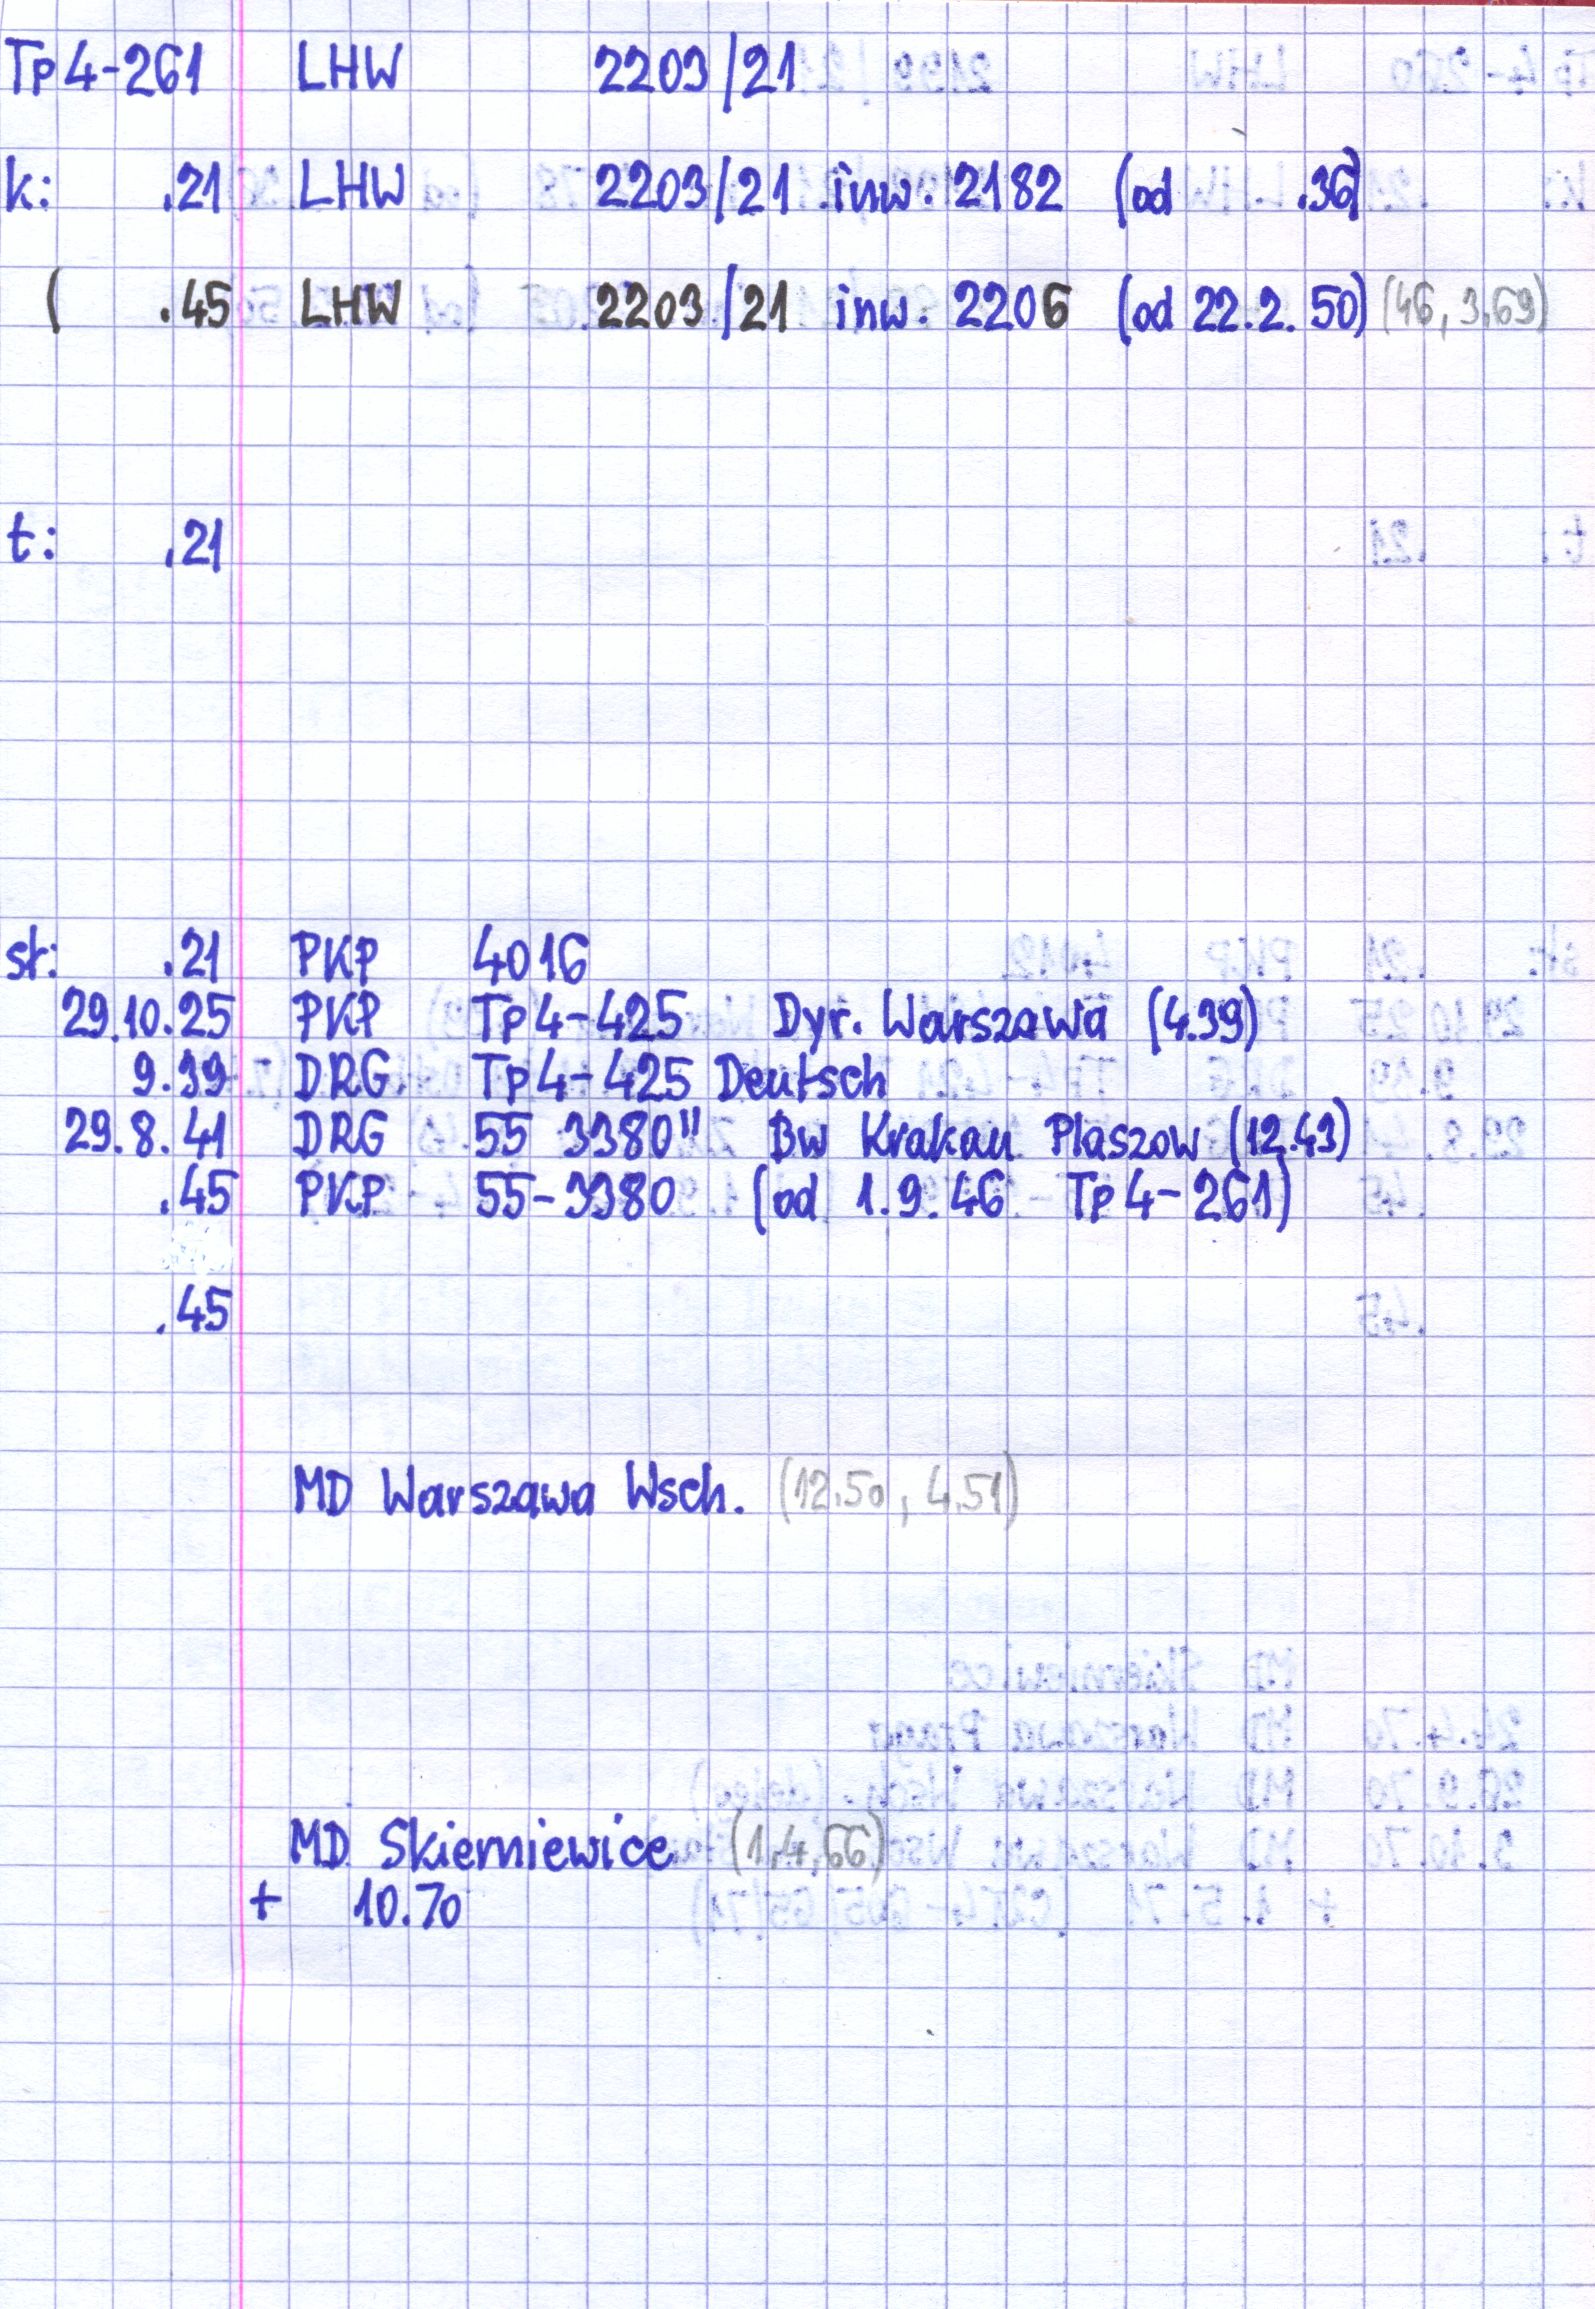 Tp4-261 LHW 2203/21
k: .21 LHW 2203/21 inw. 2182 (od .36)
( .45 LHW 2203/21 inw. 2206 (od 22.2.50) (46, 3.69)
t: .21
st: .21 PKP 4016
29.10.25 PKP Tp4-425 Dyr. Warszawa (4.39)
9.39 DRG Tp4-425 Deutsch
29.8.41 DRG 55 3380" Bw Krakau Plaszow (12.43)
.45 PKP 55-3380 (od 1.9.46 Tp4-261)
.45
MD Warszawa Wsch. (12.50, 4.51)
MD Skierniewice (1.4.66)
+ 10.70